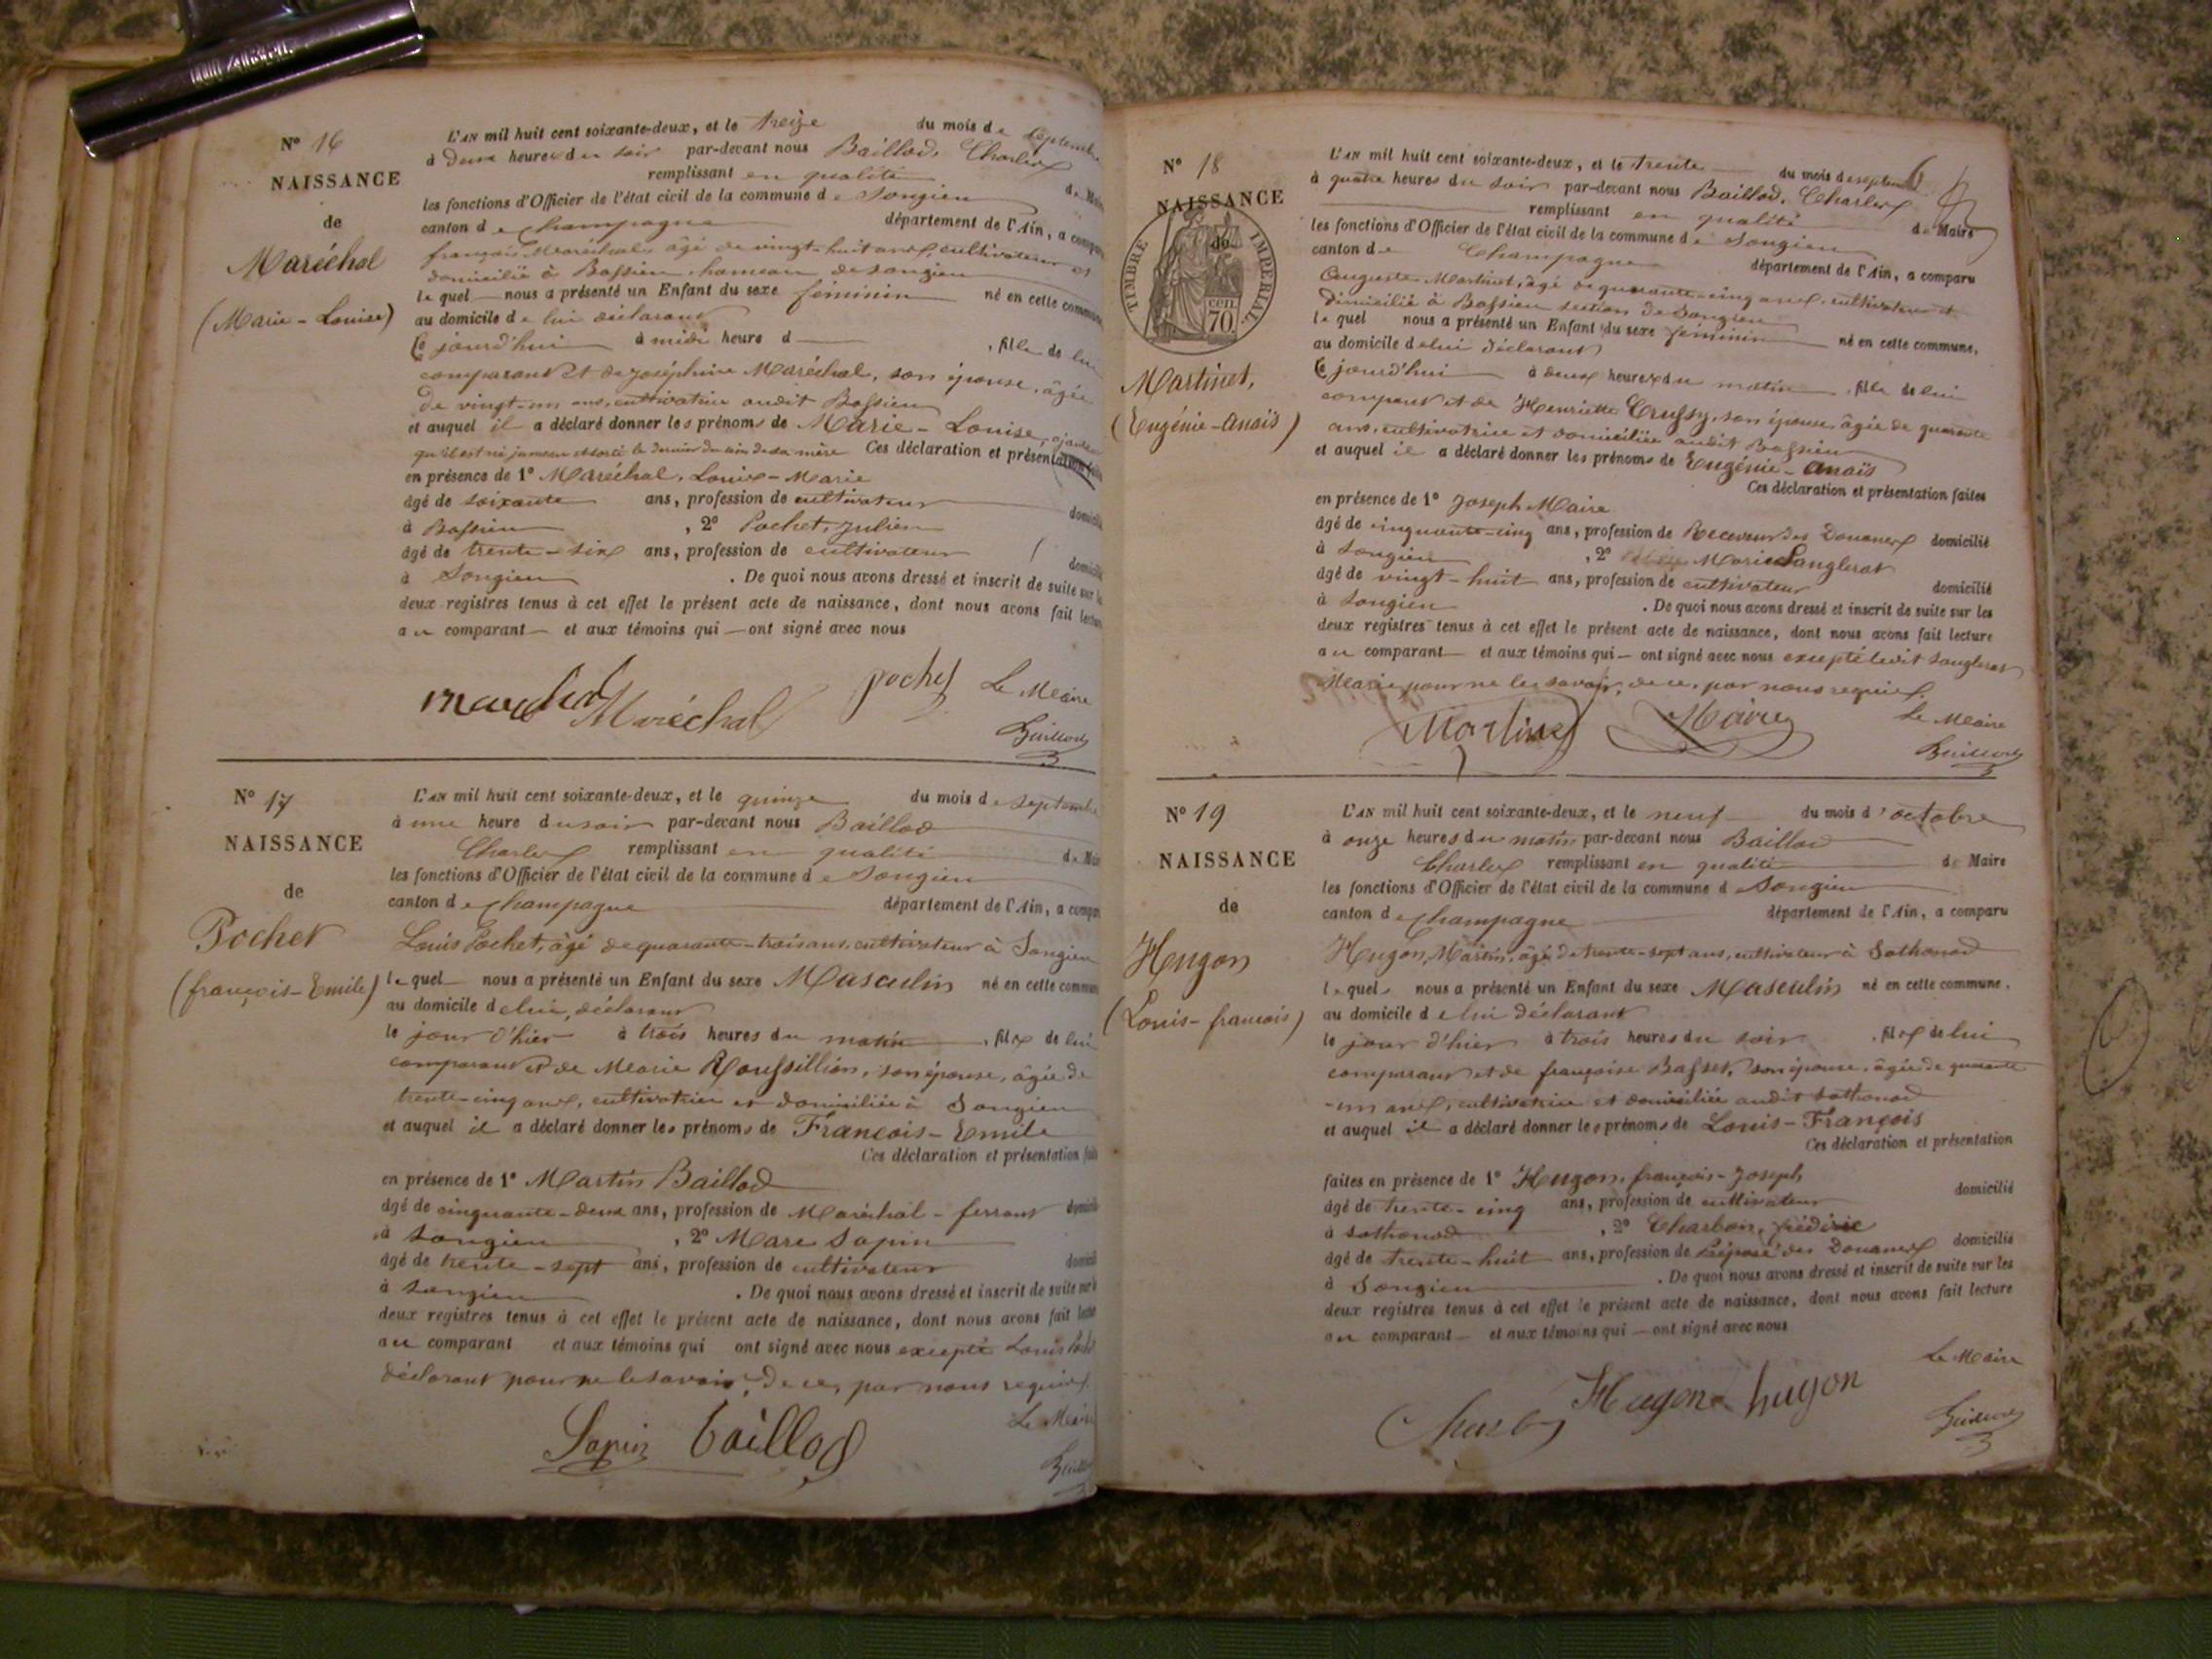 N° 16
NAISSANCE
de
Maréchal
(Marie-Louise)
L'AN mil huit cent soixante-deux, et le treize du mois de septembre
à deux heures du soir par-devant nous Baillod, Charles
remplissant en qualité de Maire
les fonctions d'Officier de l'état civil de la commune de Songieu
canton de Champagne département de l'Ain, a comparu
françois Maréchal, âgé de vingt-huit ans, cultivateur et
domicilié à Bassieu, hameau de Songieu
lequel nous a présenté un Enfant du sexe féminin né en cette commune
au domicile de lui déclarant
Ce jourd'hui à midi heure d , fille de lui
comparant et de Joséphine Maréchal, son épouse, âgée
de vingt-un ans, cultivatrice audit Bassieu
et auquel il a déclaré donner les prénoms de Marie-Louise, ajoutant
qu'il est né jumeau et sorti le dernier du sein de sa mère Ces déclaration et présentation faites
en présence de 1° Maréchal, Louis-Marie
âgé de soixante ans, profession de cultivateur domicilié
à Bassieu , 2° Pochet, Julien
âgé de trente-six ans, profession de cultivateur domicilié
à Songieu . De quoi nous avons dressé et inscrit de suite sur les
deux registres tenus à cet effet le présent acte de naissance, dont nous avons fait lecture
au comparant et aux témoins qui ont signé avec nous
Maréchal pochet Le Maire
Baillod
N° 17
NAISSANCE
de
Pochet
(françois-Emile)
L'AN mil huit cent soixante-deux, et le quinze du mois de septembre
à une heure du soir par-devant nous Baillod
Charles remplissant en qualité de Maire
les fonctions d'Officier de l'état civil de la commune de Songieu
canton de Champagne département de l'Ain, a comparu
Louis Pochet, âgé de quarante-trois ans, cultivateur à Songieu
lequel nous a présenté un Enfant du sexe Masculin né en cette commune
au domicile de lui, déclarant
le jour d'hier à trois heures du matin , fils de lui
comparant et de Marie Roussillion, son épouse, âgée de
trente-cinq ans, cultivatrice et domiciliée à Songieu
et auquel il a déclaré donner les prénoms de François-Emile
Ces déclaration et présentation faites
en présence de 1° Martin Baillod
âgé de cinquante-deux ans, profession de Maréchal-ferrant domicilié
à Songieu , 2° Marc Sapin
âgé de trente-sept ans, profession de cultivateur domicilié
à Songieu . De quoi nous avons dressé et inscrit de suite sur les
deux registres tenus à cet effet le présent acte de naissance, dont nous avons fait lecture
au comparant et aux témoins qui ont signé avec nous excepté Louis Pochet
déclarant pour ne le savoir, de ce, par nous requis.
Sapin Baillod Le Maire
Baillod
N° 18
NAISSANCE
de
TIMBRE IMPERIAL
cen
70.
Martinet,
(Eugénie-Anaïs)
L'AN mil huit cent soixante-deux, et le trente du mois de septembre
à quatre heures du soir par-devant nous Baillod, Charles
remplissant en qualité de Maire
les fonctions d'Officier de l'état civil de la commune de Songieu
canton de Champagne département de l'Ain, a comparu
Auguste Martinet, âgé de quarante-cinq ans, cultivateur et
domicilié à Bassieu section de Songieu
lequel nous a présenté un Enfant du sexe féminin né en cette commune,
au domicile de lui déclarant
Ce jourd'hui à deux heures du matin , fille de lui
comparant et de Henriette Crussy, son épouse, âgée de quarante
ans, cultivatrice et domiciliée audit Bassieu
et auquel il a déclaré donner les prénoms de Eugénie-Anaïs
Ces déclaration et présentation faites
en présence de 1° Joseph Maire
âgé de cinquante-cinq ans, profession de Receveur des Douanes domicilié
à Songieu , 2° Marie Sanglerat
âgé de vingt-huit ans, profession de cultivateur domicilié
à Songieu . De quoi nous avons dressé et inscrit de suite sur les
deux registres tenus à cet effet le présent acte de naissance, dont nous avons fait lecture
au comparant et aux témoins qui ont signé avec nous excepté ledit Sanglerat
Marie pour ne le savoir, de ce, par nous requis.
Martinet Maire Le Maire
Baillod
N° 19
NAISSANCE
de
Hugon
(Louis-francois)
L'AN mil huit cent soixante-deux, et le neuf du mois d'octobre
à onze heures du matin par-devant nous Baillod
Charles remplissant en qualité de Maire
les fonctions d'Officier de l'état civil de la commune de Songieu
canton de Champagne département de l'Ain, a comparu
Hugon, Martin, âgé de trente-sept ans, cultivateur à Sothonod
lequel nous a présenté un Enfant du sexe Masculin né en cette commune,
au domicile de lui déclarant
le jour d'hier à trois heures du soir , fils de lui
comparant et de françoise Basset, son épouse, âgée de quarante
-un ans, cultivatrice et domiciliée audit Sothonod
et auquel il a déclaré donner les prénoms de Louis-François
Ces déclaration et présentation
faites en présence de 1° Hugon, françois-Joseph
âgé de trente-cinq ans, profession de cultivateur domicilié
à Sothonod , 2° Charbon, frédéric
âgé de trente-huit ans, profession de Préposé des Douanes domicilié
à Songieu . De quoi nous avons dressé et inscrit de suite sur les
deux registres tenus à cet effet le présent acte de naissance, dont nous avons fait lecture
au comparant et aux témoins qui ont signé avec nous
Le Maire
Hugon hugon
Baillod